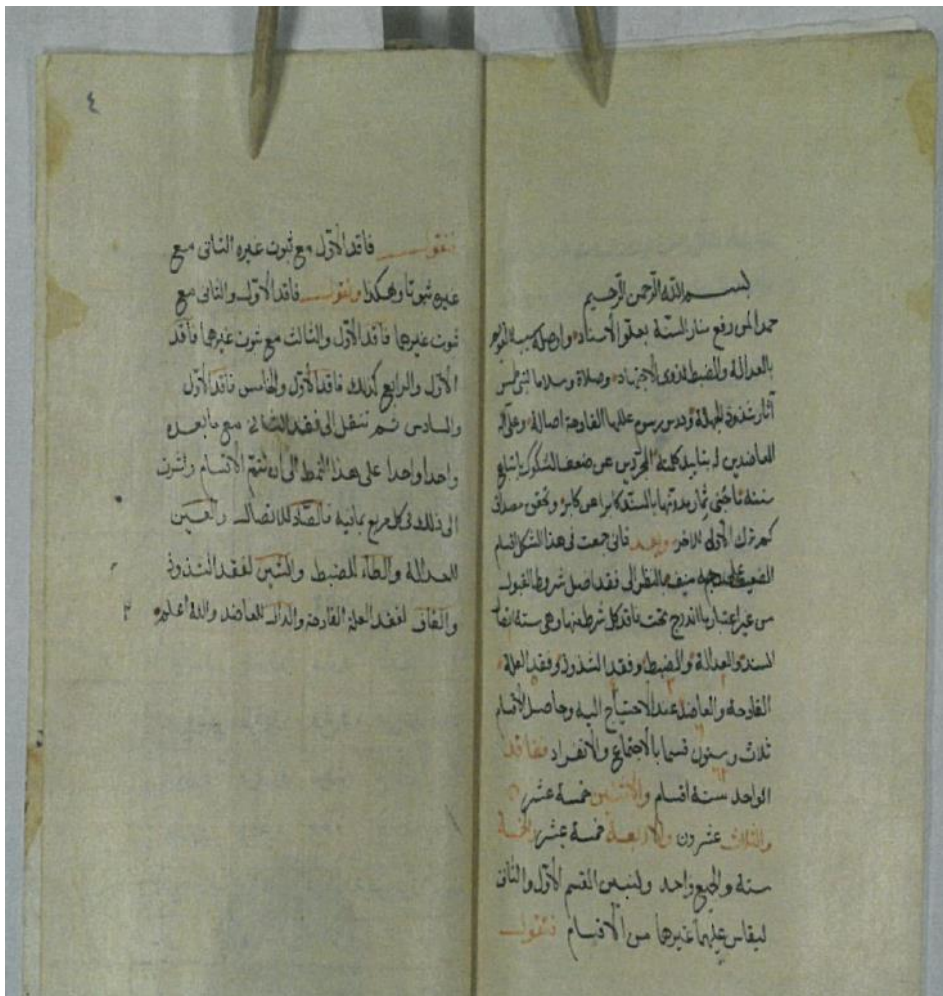 بسم الله الرحمن الرحيم
حمدا لمن رفع منار السنة بعلو الأسناد واوصله
بالعدالة والضبط لذوى الاجتهاد وصلاة وسلاما لنبى طمس
آثار شذوذ الجهالة ودرس برسوم عللها القادحة اصالة وعلى اله
العاضدين لتاييد كلمته المجردين عن ضعف الشكوك باتباع
سنته ثمار بالسند كابرا عن كابر وتحقق مصداق
كم ترك الأول للاخر وبعد فانى جمعت فى هذا الشكل اقسام
الضعيف على بالنظر الى فقد اصل شروط القبول
من غير اعتبار ما اندرج تحت فاقد كل شرط منها وهى ستة اتصال
السند والعدالة والضبط وفقد الشذوذ وفقد العلة
القادحة والعاضد عند الاحتياج اليه وحاصل الأقسام
ثلاث وستون قسما بالاجتماع والانفراد ففاقد
الواحد ستة اقسام والاثنين خمسة عشر
والثلاث عشرون والاربعة خمسة عشر والخمسة
ستة والجميع واحد ولنبين القسم الأول والثانى
ليقاس عليهما غيرهما من الأقسام فنقول
٤
فنقول فاقد الأول مع ثبوت غيره الثانى مع
غيره ثبوتا وهكذا ونقول فاقد الأول والثانى مع
ثبوت غيرهما فاقد الأول والثالث مع ثبوت غيرهما فاقد
الأول والرابع كذلك فاقد الأول والخامس فاقد الأول
والسادس ثم تنتقل الى فقد الثانى مع ما بعده
واحدا واحدا على هذا النمط الى ان تتم الأقسام واشرت
الى ذلك فى كل مربع فالصاد للاتصال والعين
للعدالة والطاء للضبط والشين لفقد الشذوذ
والقاف لفقد العلة القادحة والدال للعاضد والله اعلم